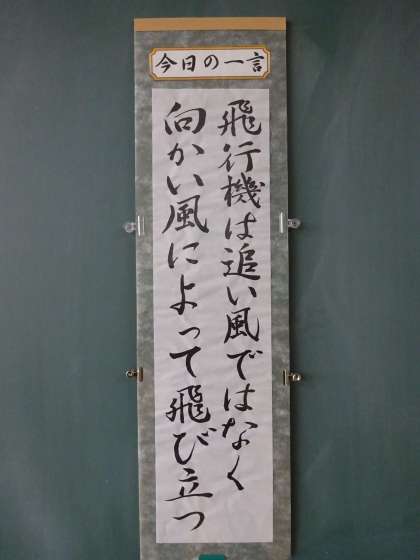 今日の一言
飛行機は追い風ではなく
向かい風によって飛び立つ